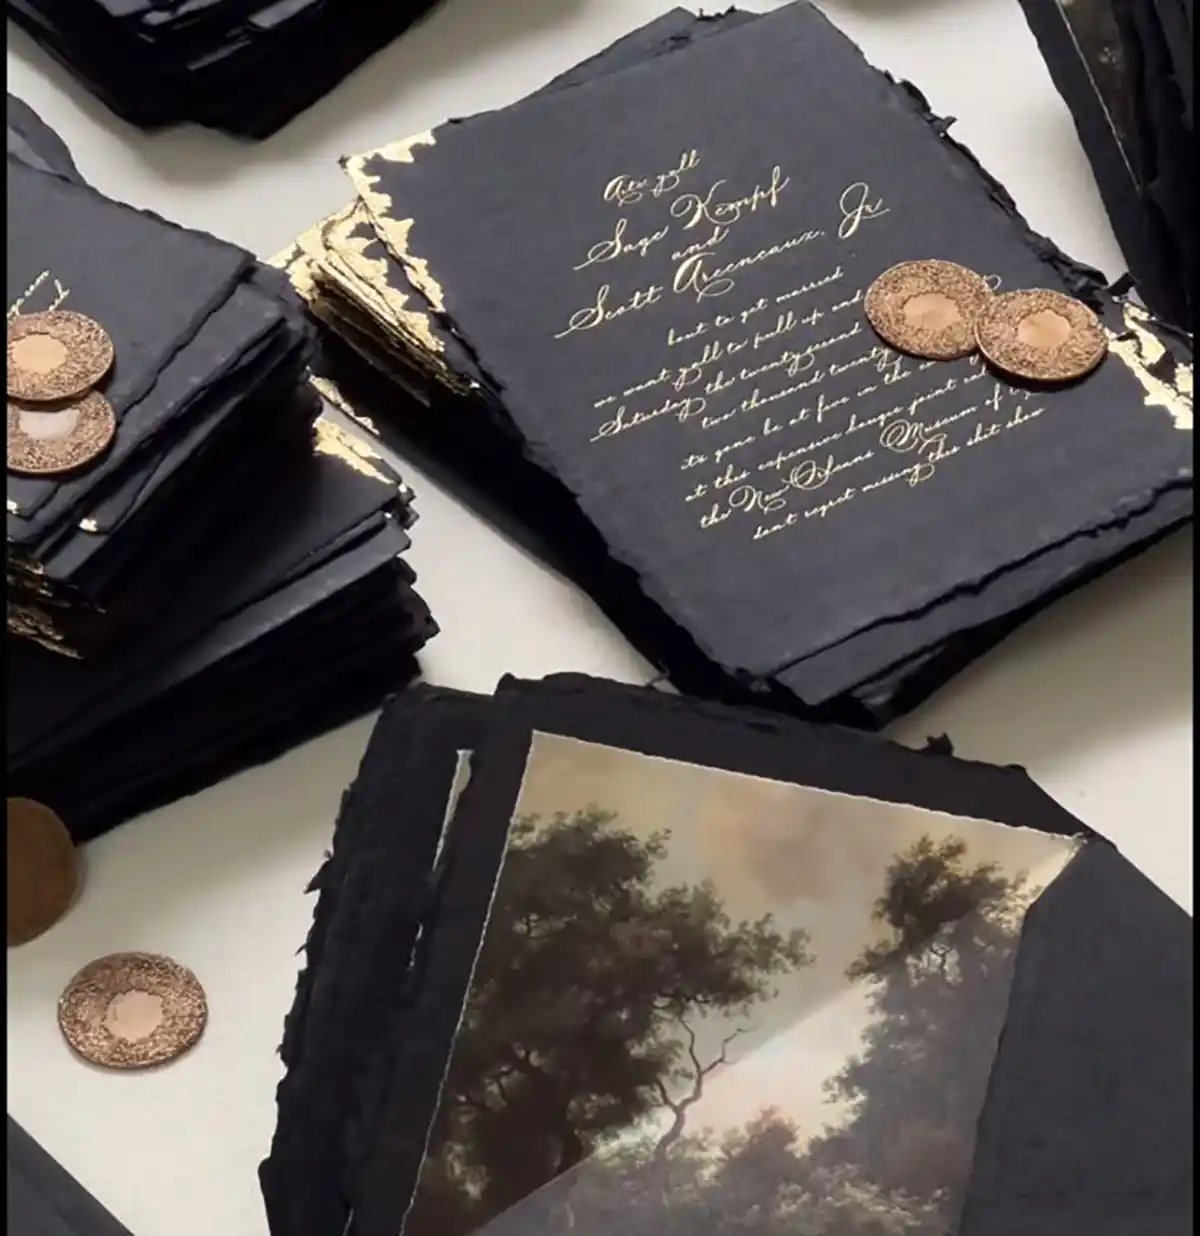 Aite yall
Sage Kempf
and
Scott Arceneaux, Jr
bout to get married
we want yall to pull up and
Saturday the twenty second
two thousand twenty
its gone be at five in the
at this expensive bougie joint
the New Orleans Museum of
dont regret missing this shit show